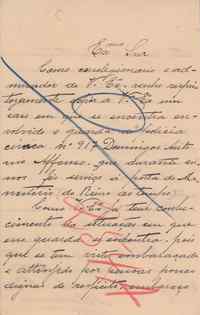 Exmo Snr
Como correligionario e ad-
mirador de V. Exa, venho respei-
tosamente expôr a V. Exa um
caso em que se encontra en-
volvido o guarda da Policia
civica No 917 Domingos Anto-
nio Affonso, que durante an-
nos fez serviço á porta do Mi-
nisterio do Reino
Como V. Exa já tem conhe-
cimento da situação em que
esse guarda se encontra, pois
que se tem visto embaraçado
e attingido por cousas pouco
dignas de respeito